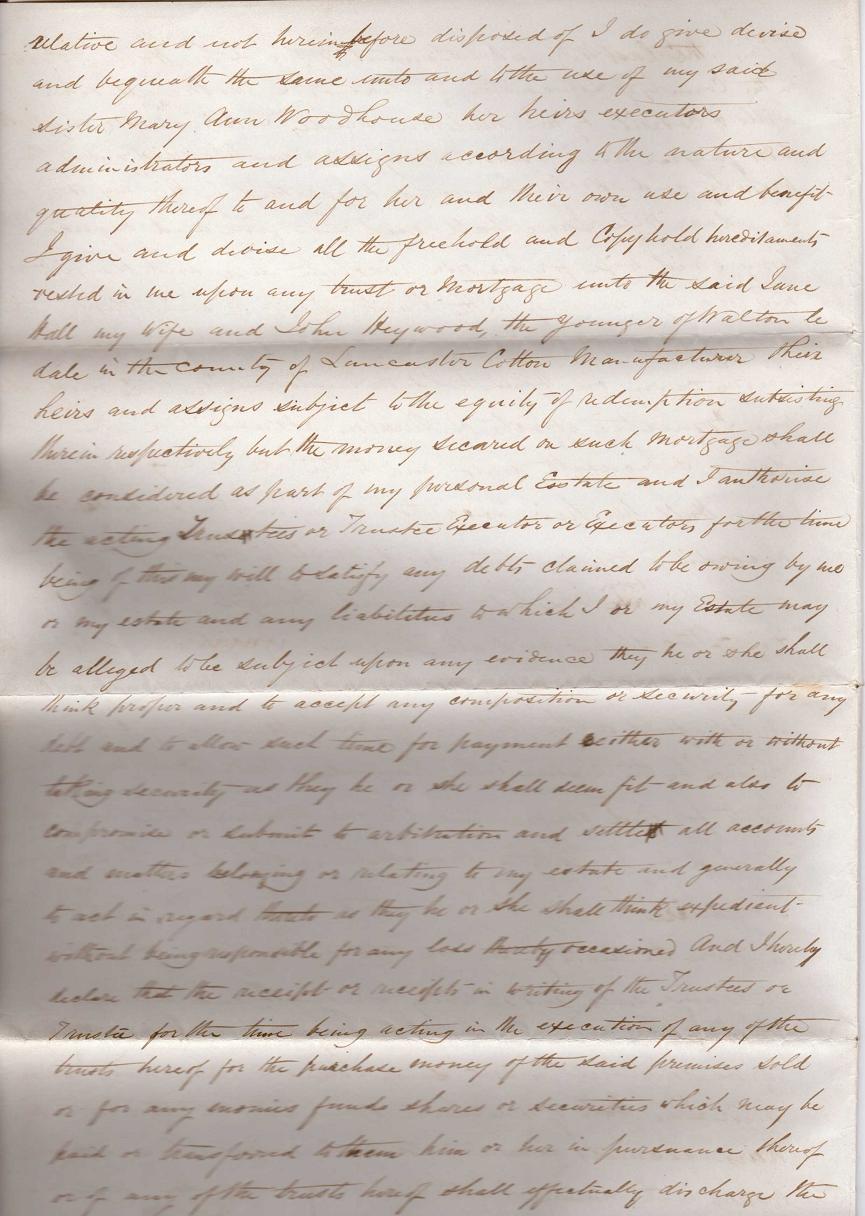 relative and not hereinbefore disposed of I do give devise
and bequeath the same unto and to the use of my said
sister Mary Ann Woodhouse her heirs executors
administrators and assigns according to the nature and
quality thereof to and for her and their own use and benefit
I give and devise all the freehold and Copyhold hereditaments
vested in me upon any trust or Mortgage unto the said Jane
Hall my Wife and John Heywood, the Younger of Walton le
dale in the county of Lancaster Cotton Manufacturer their
heirs and assigns subject to the equity of redemption subsisting
therein respectively but the money secured on such mortgage shall
be considered as part of my personal Estate and I authorise
the acting Trustees or Trustee Executor or Executors for the time
being of this my will to satisfy any debts claimed to be owing by me
or my estate and any liabilities to which I or my Estate may
be alleged to be subject upon any evidence they he or she shall
think proper and to accept any composition or security for any
debt and to allow such time for payment either with or without
taking security as they he or she shall deem fit and also to
compromise or submit to arbitration and settle all accounts
and matters belonging or relating to my estate and generally
to act in regard thereto as they he or she shall think expedient
without being responsible for any loss thereby occasioned And I hereby
declare that the receipt or receipts in writing of the Trustees or
Trustee for the time being acting in the execution of any of the
trusts hereof for the purchase money of the said premises sold
or for any monies funds shares or securities which may be
paid or transferred to them him or her in pursuance thereof
or of any of the trusts hereof shall effectually discharge the